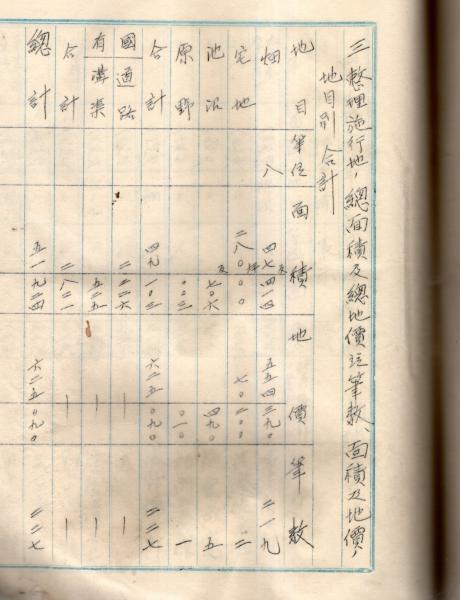 三 整理施行地ノ總面積及總地價並筆數、面積及地價ノ
地目別合計
地目 等位 面積 地價 筆數
畑 八 四七四一四 五五四三九〇 二一九
宅地 二八〇〇〇 七〇二〇〇 二
池沼 七〇六 四九〇 五
原野 〇〇三 〇一〇 一
合計 四九一〇三 六二五〇九〇 二二七
國道路 二二二六 — —
有溝渠 五二五 — —
合計 二八二一 — —
總計 五一九二四 六二五〇九〇 二二七